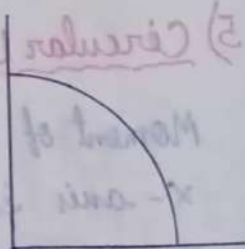 5) Circular
Moment of
x-axis